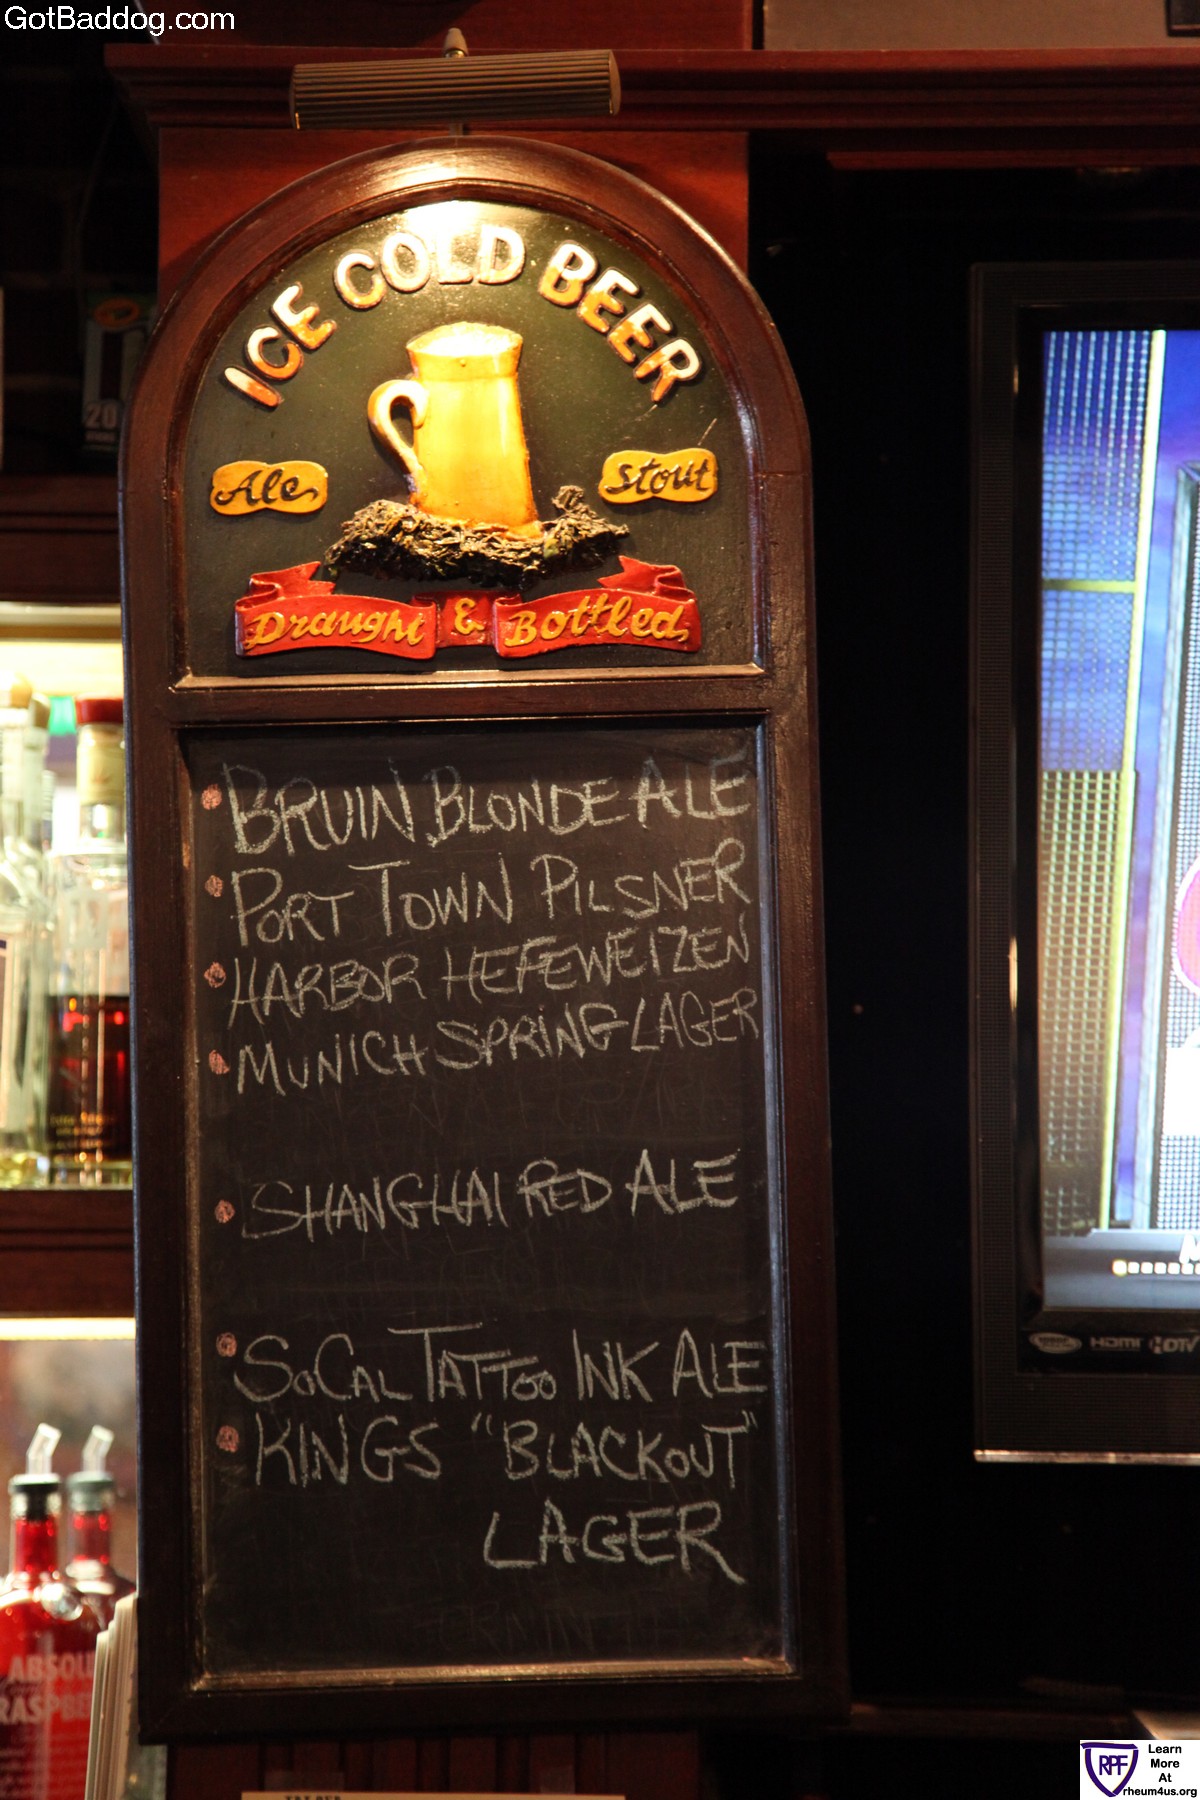 GotBaddog.com
ICE COLD BEER
Ale
Stout
Draught & Bottled
BRUIN BLONDE ALE
PORT TOWN PILSNER
HARBOR HEFEWEIZEN
MUNICH SPRING LAGER
SHANGHAI RED ALE
SOCAL TATTOO INK ALE
KINGS "BLACKOUT"
LAGER
20
HDMI HDTV
ABSOL
RASPBE
RPF
Learn
More
At
rheum4us.org